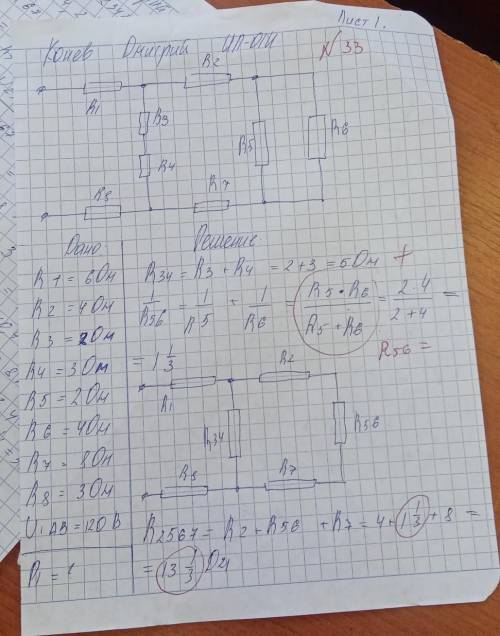 Лист 1.
Конев Дмитрий ИП-01И
N 33
R2
R1
R3
R4
R5
R6
R8
R7
Дано
Решение
R1 = 6 Ом
R2 = 4 Ом
R3 = 2 Ом
R4 = 3 Ом
R5 = 2 Ом
R6 = 4 Ом
R7 = 8 Ом
R8 = 3 Ом
U1AB = 120 В
P1 = ?
R34 = R3 + R4 = 2+3 = 5 Ом +
1/R56 = 1/R5 + 1/R6 = R5 · R6 / R5 + R6 = 2·4 / 2+4 =
R56 =
= 1 1/3
R1
R2
R34
R56
R8
R7
R2567 = R2 + R56 + R7 = 4 + 1 1/3 + 8 =
= 13 1/3 Ом